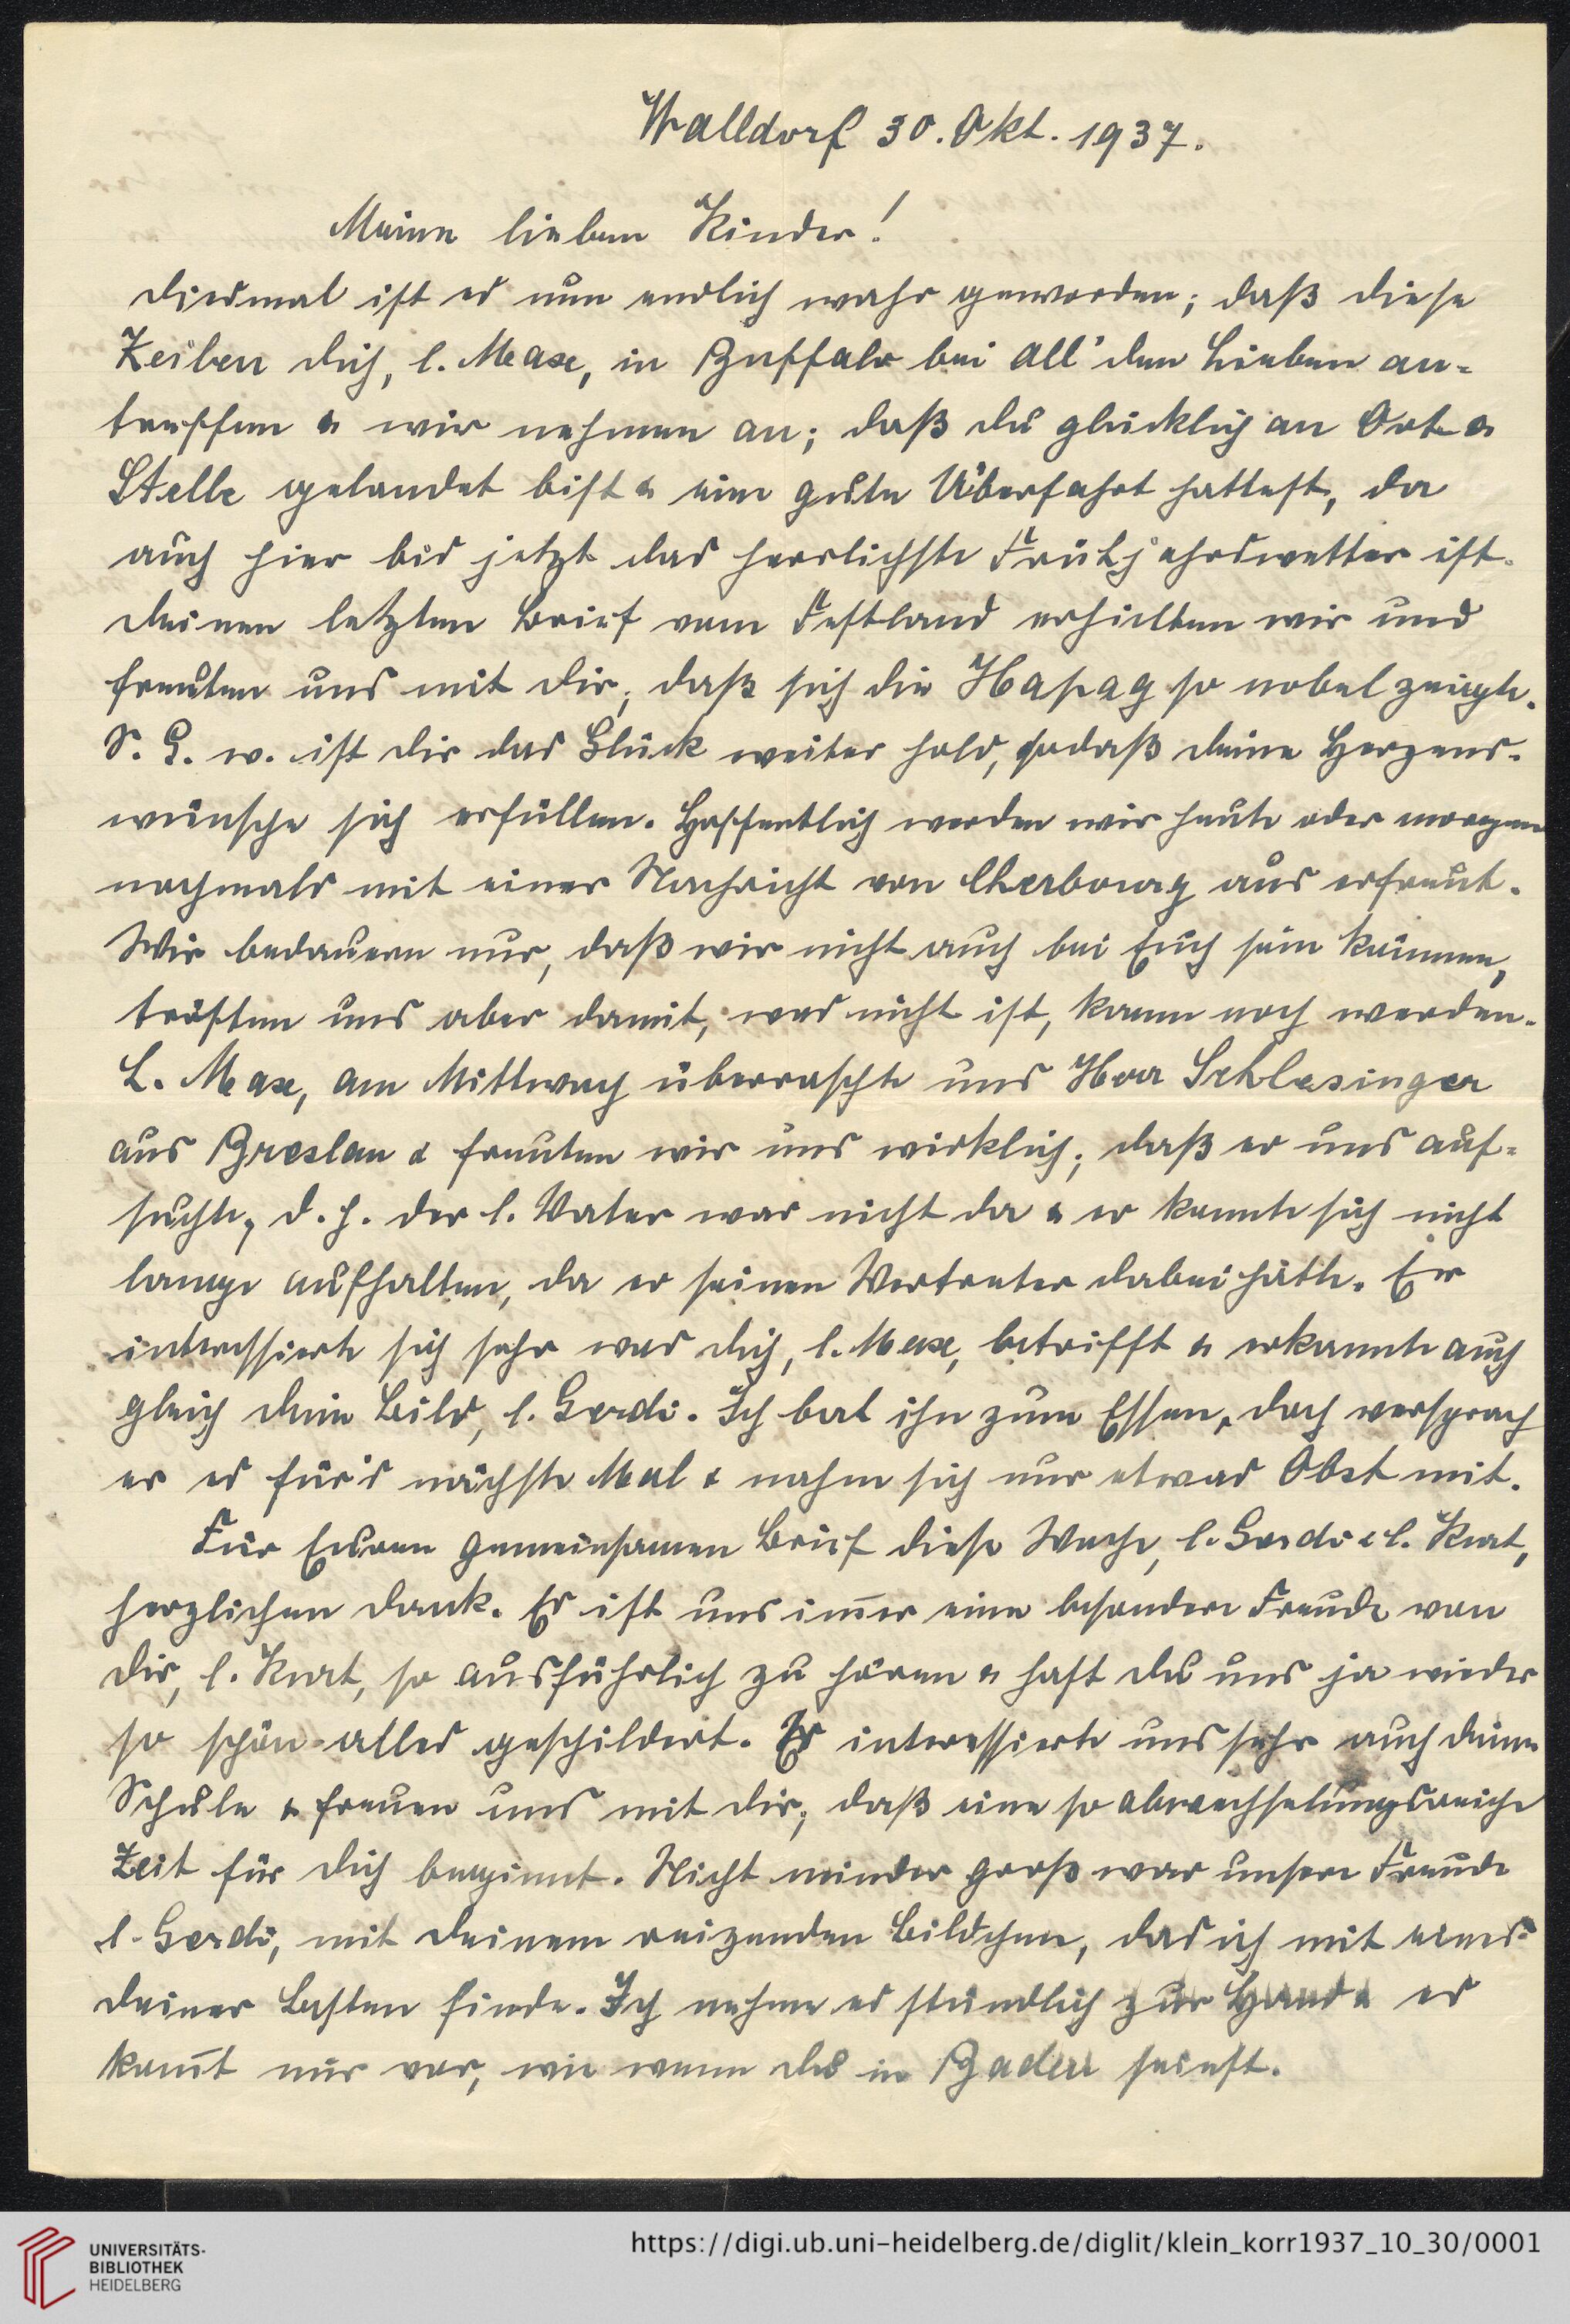 Walldorf 30. Okt. 1937.
Meine lieben Kinder!
Diesmal ist es nun endlich wahr geworden; daß diese
Zeilen dich, l. Max, in Buffalo bei all' den Lieben an-
treffen & wir nehmen an; daß du glücklich an Ort &
Stelle gelandet bist & eine gute Überfahrt hattest, da
auch hier bis jetzt das herrlichste Frühjahrswetter ist.
Deinen letzten Brief vom Festland erhielten wir und
freuten uns mit dir, daß sich die Hapag so nobel zeigte.
S. G. w. ist dir das Glück weiter hold, sodaß deine Herzens-
wünsche sich erfüllen. Hoffentlich werden wir heute oder morgen
nochmals mit einer Nachricht von Cherbourg aus erfreut.
Wir bedauern nur, daß wir nicht auch bei Euch sein können,
trösten uns aber damit, was nicht ist, kann noch werden.
L. Max, am Mittwoch überraschte uns Herr Schlesinger
aus Breslau & freuten wir uns wirklich; daß er uns auf-
suchte, d. h. der l. Vater war nicht da & er konnte sich nicht
lange aufhalten, da er seinen Vertreter dabei hatte. Er
interessierte sich sehr was dich, l. Max, betrifft & erkannte auch
gleich dein Bild, l. Gerdi. Ich bat ihn zum Essen, doch versprach
er es für's nächste Mal & nahm sich nur etwas Obst mit.
Für Euren gemeinsamen Brief diese Woche, l. Gerdi & l. Kurt,
herzlichen Dank. Es ist uns im̄er eine besondere Freude von
dir, l. Kurt, so ausführlich zu hören & hast du uns ja wieder
so schön alles geschildert. Es interessierte uns sehr auch deine
Schule & freuen uns mit dir; daß eine so abwechselungsreiche
Zeit für dich beginnt. Nicht minder groß war unsere Freude
l. Gerdi, mit deinem reizenden Bildchen, das ich mit eines
deiner Besten finde. Ich nehme es stündlich zur Hand & es
kom̄t mir vor, wie wenn du in Baden seiest.
UNIVERSITÄTS-
BIBLIOTHEK
HEIDELBERG
https://digi.ub.uni-heidelberg.de/diglit/klein_korr1937_10_30/0001